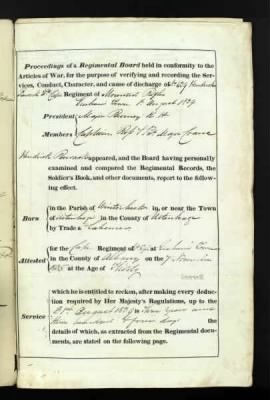 Proceedings of a Regimental Board held in conformity to the
Articles of War, for the purpose of verifying and recording the Ser-
vices, Conduct, Character, and cause of discharge of No 629 Hendrick
Regiment of Mounted Rifles
1st August 1839
President Major
Members Captain
Hendrick appeared, and the Board having personally
examined and compared the Regimental Records, the
Soldier's Book, and other documents, report to the follow-
ing effect.
Born
in the Parish of in, or near the Town
of Uitenhage in the County of Uitenhage
by Trade a Labourer
Attested
for the Cape Regiment of at Graham's Town
in the County of Albany on the
at the Age of
Service
which he is entitled to reckon, after making every deduc-
tion required by Her Majesty's Regulations, up to the
1st August 1839 is Years and
days the
details of which, as extracted from the Regimental docu-
ments, are stated on the following page.